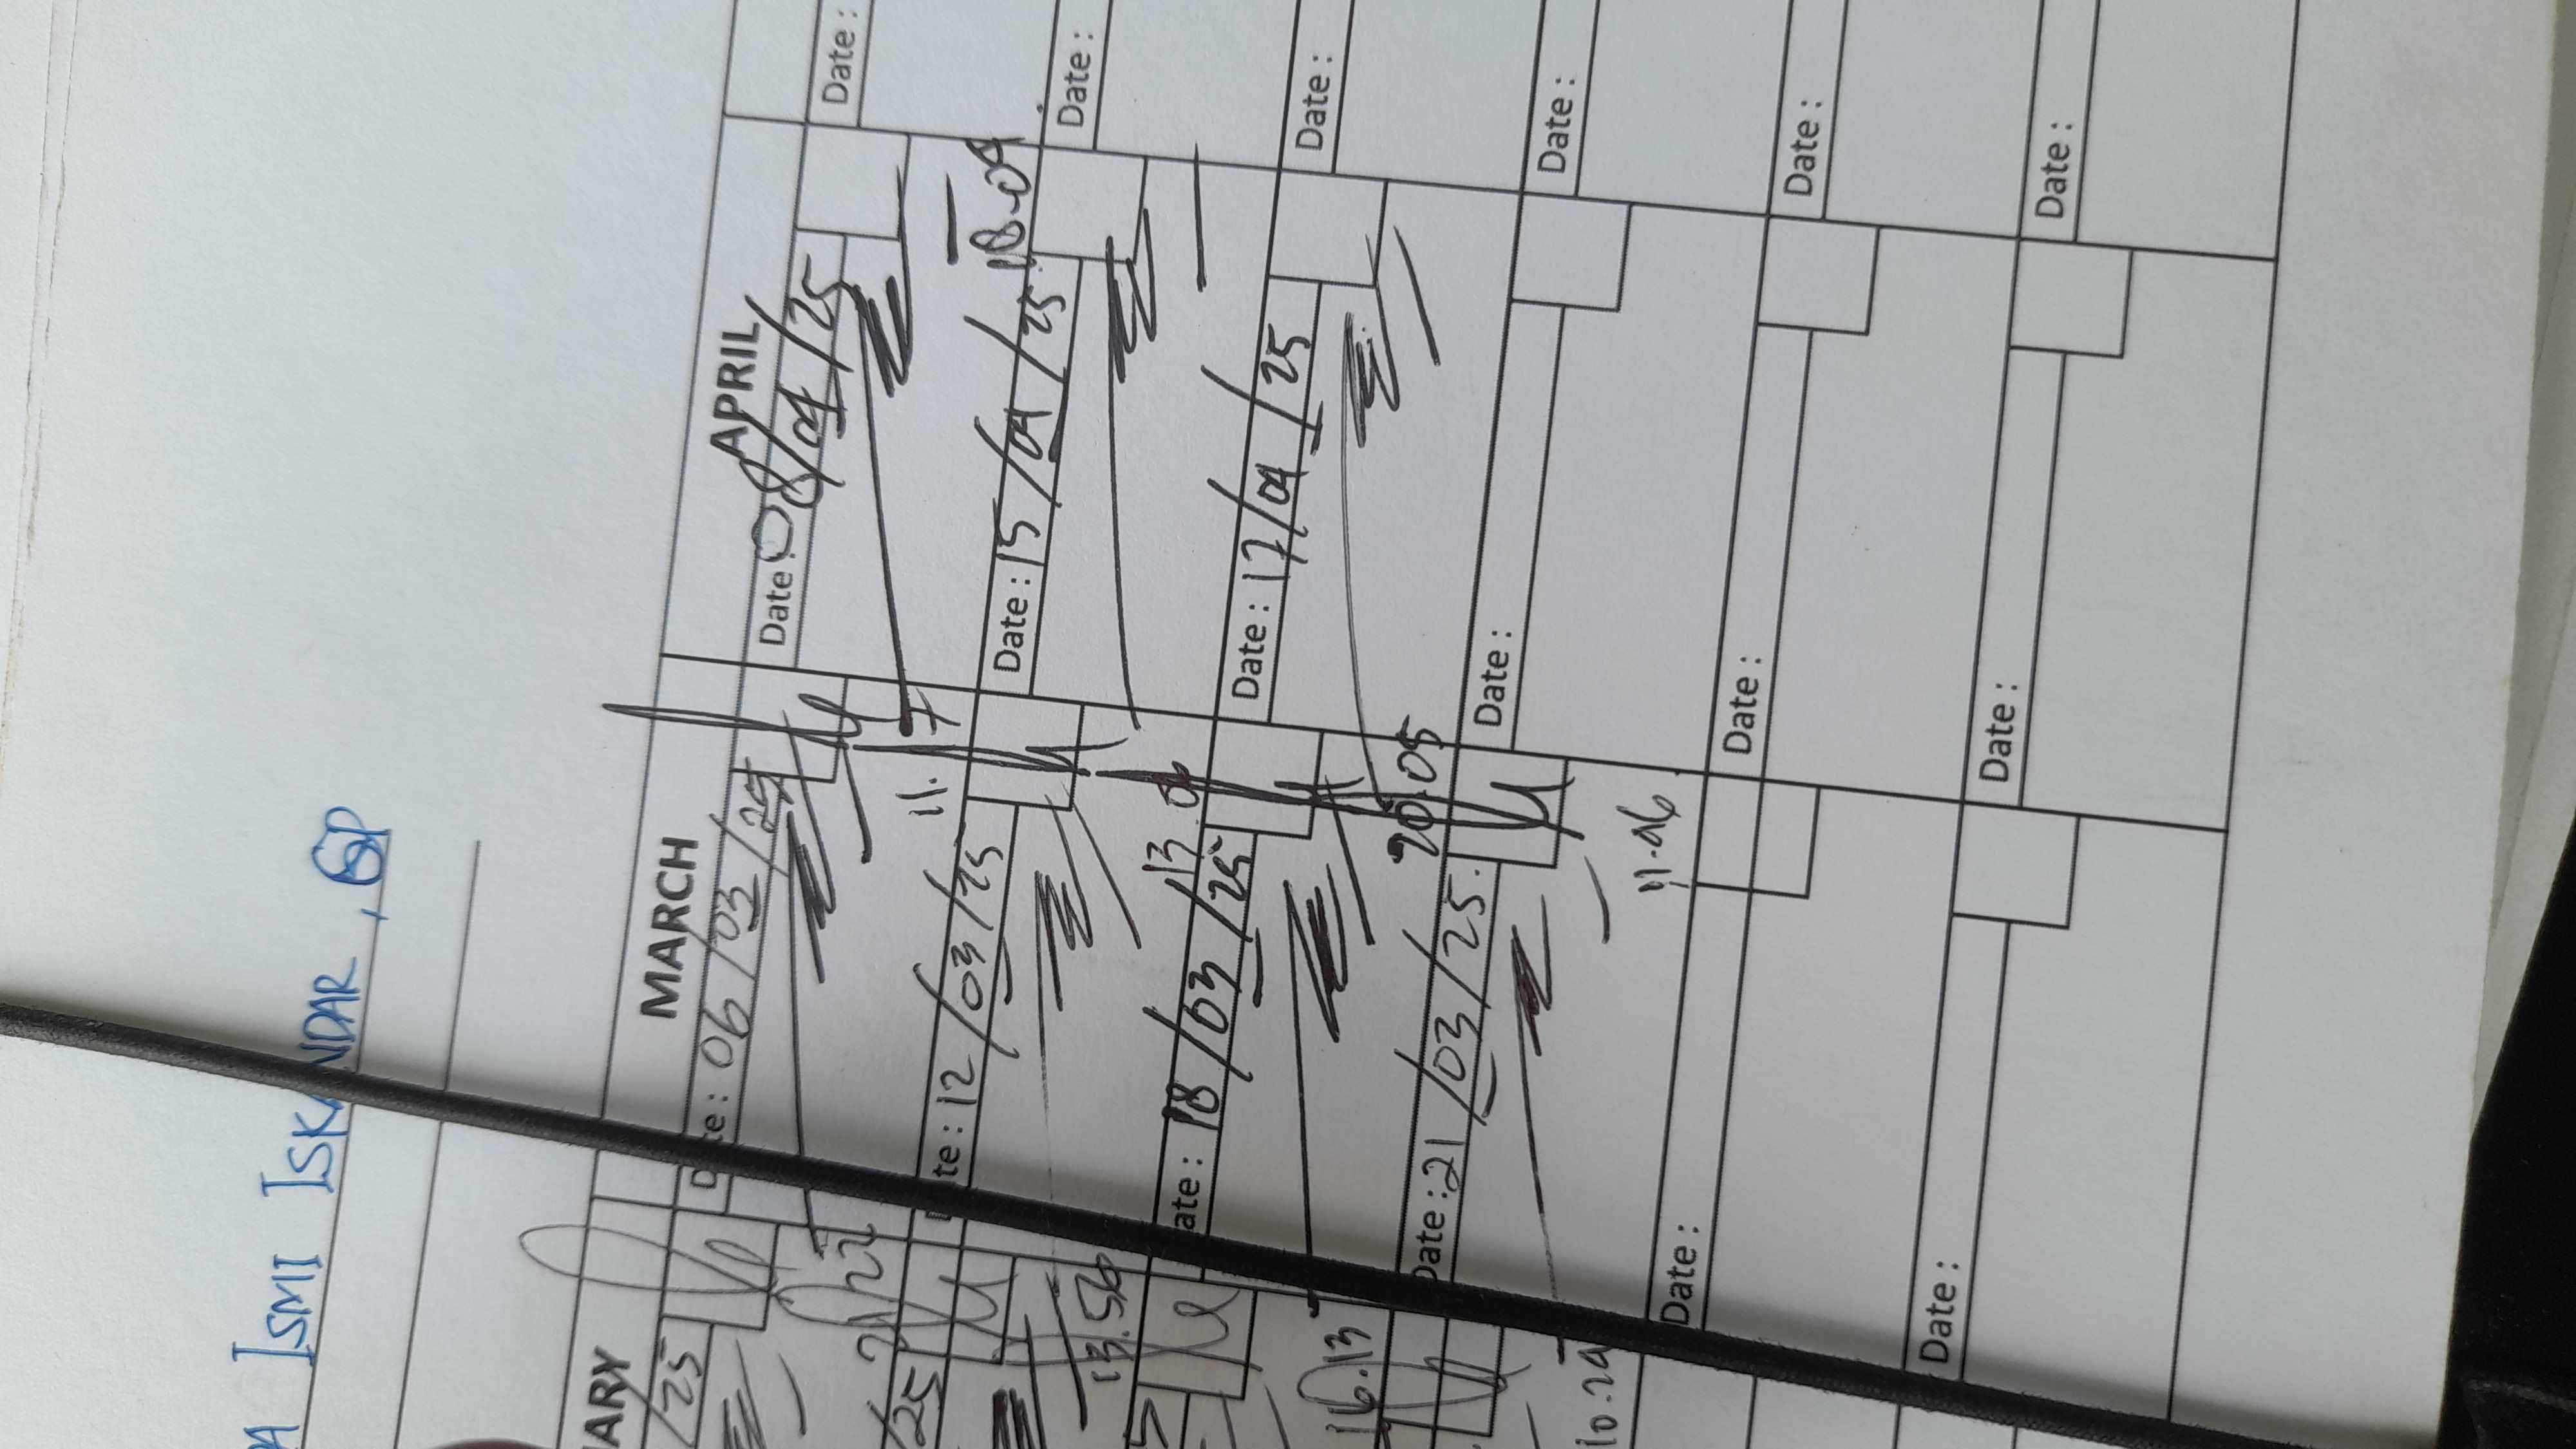 A ISMI ISKANDAR, SP
ARY
/25
/25
13.56
16.13
10.29
MARCH
Date: 06/03/25
11.
Date: 12/03/25
13.
Date: 18/03/25
20.05
Date: 21/03/25.
11.06
Date:
Date:
APRIL
Date: 08/04/25
18.09
Date: 15/04/25
Date: 17/04/25
Date:
Date:
Date:
Date:
Date:
Date:
Date:
Date:
Date: